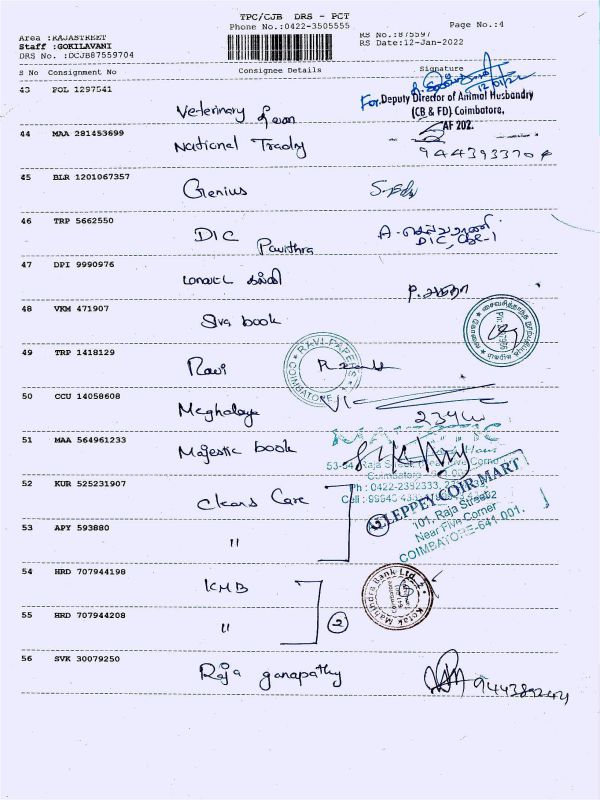 TPC/CJB DRS - PCT
Phone No.:0422-3505555
Page No.:4
Area :RAJASTREET
RS No.:875597
Staff :GOKILAVANI
RS Date:12-Jan-2022
DRS No. :DCJB87559704
S No Consignment No Consignee Details Signature
43 POL 1297541
12/01/22
For Deputy Director of Animal Husbandry
(CB & FD) Coimbatore,
Veterinary
AF 202.
44 MAA 281453699
National Tradng
45 BLR 1201067357
Genius
46 TRP 5662550
DIC
Pavithra
DIC, CBE-1
47 DPI 9990976
48 VKM 471907
Siva book
49 TRP 1418129
RAVI-PAPERS
COIMBATORE
Ravi
50 CCU 14058608
Meghalaya
51 MAA 564961233
Majestic book
52 KUR 525231907
Cleans Care
ALLEPPEY COIR MART
101, Raja Street
Near Five Corner
COIMBATORE-641 001.
53 APY 593880
"
54 HRD 707944198
KMB
Kotak Mahindra Bank Ltd
55 HRD 707944208
"
2
56 SVK 30079250
Raja ganapathy